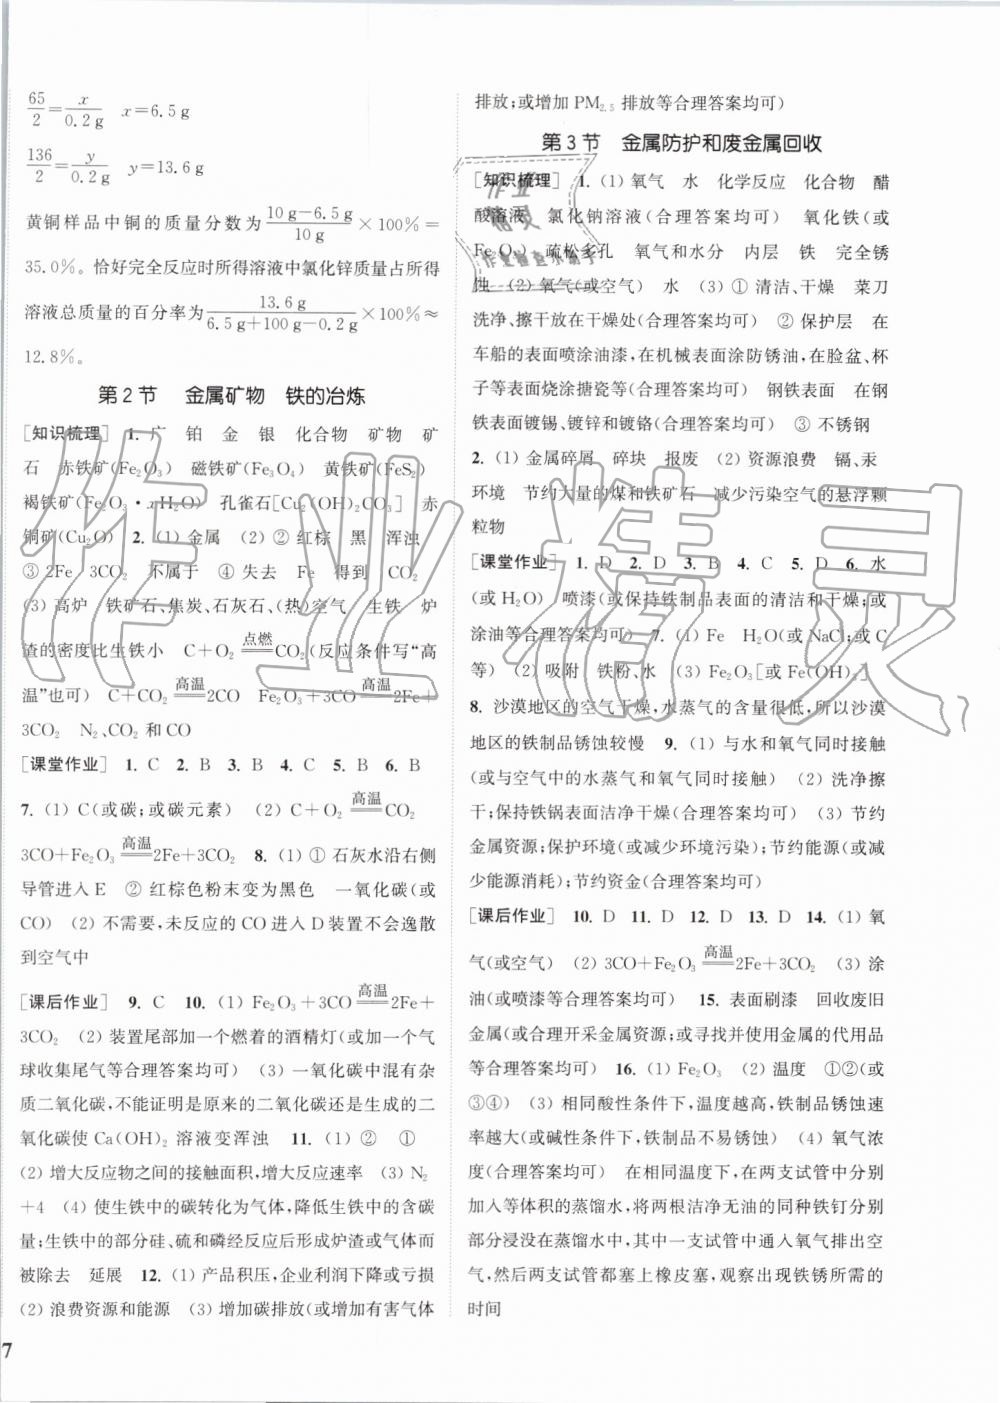 65/2=x/0.2 g x=6.5 g
136/2=y/0.2 g y=13.6 g
黄铜样品中铜的质量分数为(10 g-6.5 g)/10 g×100%=
35.0%。恰好完全反应时所得溶液中氯化锌质量占所得
溶液总质量的百分率为13.6 g/(6.5 g+100 g-0.2 g)×100%≈
12.8%。
第2节 金属矿物 铁的冶炼
[知识梳理] 1. 广 铂 金 银 化合物 矿物 矿
石 赤铁矿(Fe₂O₃) 磁铁矿(Fe₃O₄) 黄铁矿(FeS₂)
褐铁矿(Fe₂O₃·xH₂O) 孔雀石[Cu₂(OH)₂CO₃] 赤
铜矿(Cu₂O) 2. (1) 金属 (2) ② 红棕 黑 浑浊
③ 2Fe 3CO₂ 不属于 ④ 失去 Fe 得到 CO₂
(3) 高炉 铁矿石、焦炭、石灰石、(热)空气 生铁 炉
渣的密度比生铁小 C+O₂ 点燃═ CO₂(反应条件写“高
温”也可) C+CO₂ 高温═ 2CO Fe₂O₃+3CO 高温═ 2Fe+
3CO₂ N₂、CO₂ 和 CO
[课堂作业] 1. C 2. B 3. B 4. C 5. B 6. B
7. (1) C(或碳;或碳元素) (2) C+O₂ 高温═ CO₂
3CO+Fe₂O₃ 高温═ 2Fe+3CO₂ 8. (1) ① 石灰水沿右侧
导管进入 E ② 红棕色粉末变为黑色 一氧化碳(或
CO) (2) 不需要,未反应的 CO 进入 D 装置不会逸散
到空气中
[课后作业] 9. C 10. (1) Fe₂O₃+3CO 高温═ 2Fe+
3CO₂ (2) 装置尾部加一个燃着的酒精灯(或加一个气
球收集尾气等合理答案均可) (3) 一氧化碳中混有杂
质二氧化碳,不能证明是原来的二氧化碳还是生成的二
氧化碳使 Ca(OH)₂ 溶液变浑浊 11. (1) ② ①
(2) 增大反应物之间的接触面积,增大反应速率 (3) N₂
+4 (4) 使生铁中的碳转化为气体,降低生铁中的含碳
量;生铁中的部分硅、硫和磷经反应后形成炉渣或气体而
被除去 延展 12. (1) 产品积压,企业利润下降或亏损
(2) 浪费资源和能源 (3) 增加碳排放(或增加有害气体
7
排放;或增加 PM₂.₅ 排放等合理答案均可)
第3节 金属防护和废金属回收
[知识梳理] 1. (1) 氧气 水 化学反应 化合物 醋
酸溶液 氯化钠溶液(合理答案均可) 氧化铁(或
Fe₂O₃) 疏松多孔 氧气和水分 内层 铁 完全锈
蚀 (2) 氧气(或空气) 水 (3) ① 清洁、干燥 菜刀
洗净、擦干放在干燥处(合理答案均可) ② 保护层 在
车船的表面喷涂油漆,在机械表面涂防锈油,在脸盆、杯
子等表面烧涂搪瓷等(合理答案均可) 钢铁表面 在钢
铁表面镀锡、镀锌和镀铬(合理答案均可) ③ 不锈钢
2. (1) 金属碎屑 碎块 报废 (2) 资源浪费 镉、汞
环境 节约大量的煤和铁矿石 减少污染空气的悬浮颗
粒物
[课堂作业] 1. D 2. D 3. B 4. C 5. D 6. 水
(或 H₂O) 喷漆(或保持铁制品表面的清洁和干燥;或
涂油等合理答案均可) 7. (1) Fe H₂O(或 NaCl;或 C
等) (2) 吸附 铁粉、水 (3) Fe₂O₃[或 Fe(OH)₃]
8. 沙漠地区的空气干燥,水蒸气的含量很低,所以沙漠
地区的铁制品锈蚀较慢 9. (1) 与水和氧气同时接触
(或与空气中的水蒸气和氧气同时接触) (2) 洗净擦
干;保持铁锅表面洁净干燥(合理答案均可) (3) 节约
金属资源;保护环境(或减少环境污染);节约能源(或减
少能源消耗);节约资金(合理答案均可)
[课后作业] 10. D 11. D 12. D 13. D 14. (1) 氧
气(或空气) (2) 3CO+Fe₂O₃ 高温═ 2Fe+3CO₂ (3) 涂
油(或喷漆等合理答案均可) 15. 表面刷漆 回收废旧
金属(或合理开采金属资源;或寻找并使用金属的代用品
等合理答案均可) 16. (1) Fe₂O₃ (2) 温度 ①②(或
③④) (3) 相同酸性条件下,温度越高,铁制品锈蚀速
率越大(或碱性条件下,铁制品不易锈蚀) (4) 氧气浓
度(合理答案均可) 在相同温度下,在两支试管中分别
加入等体积的蒸馏水,将两根洁净无油的同种铁钉分别
部分浸没在蒸馏水中,其中一支试管中通入氧气排出空
气,然后两支试管都塞上橡皮塞,观察出现铁锈所需的
时间
作业精灵